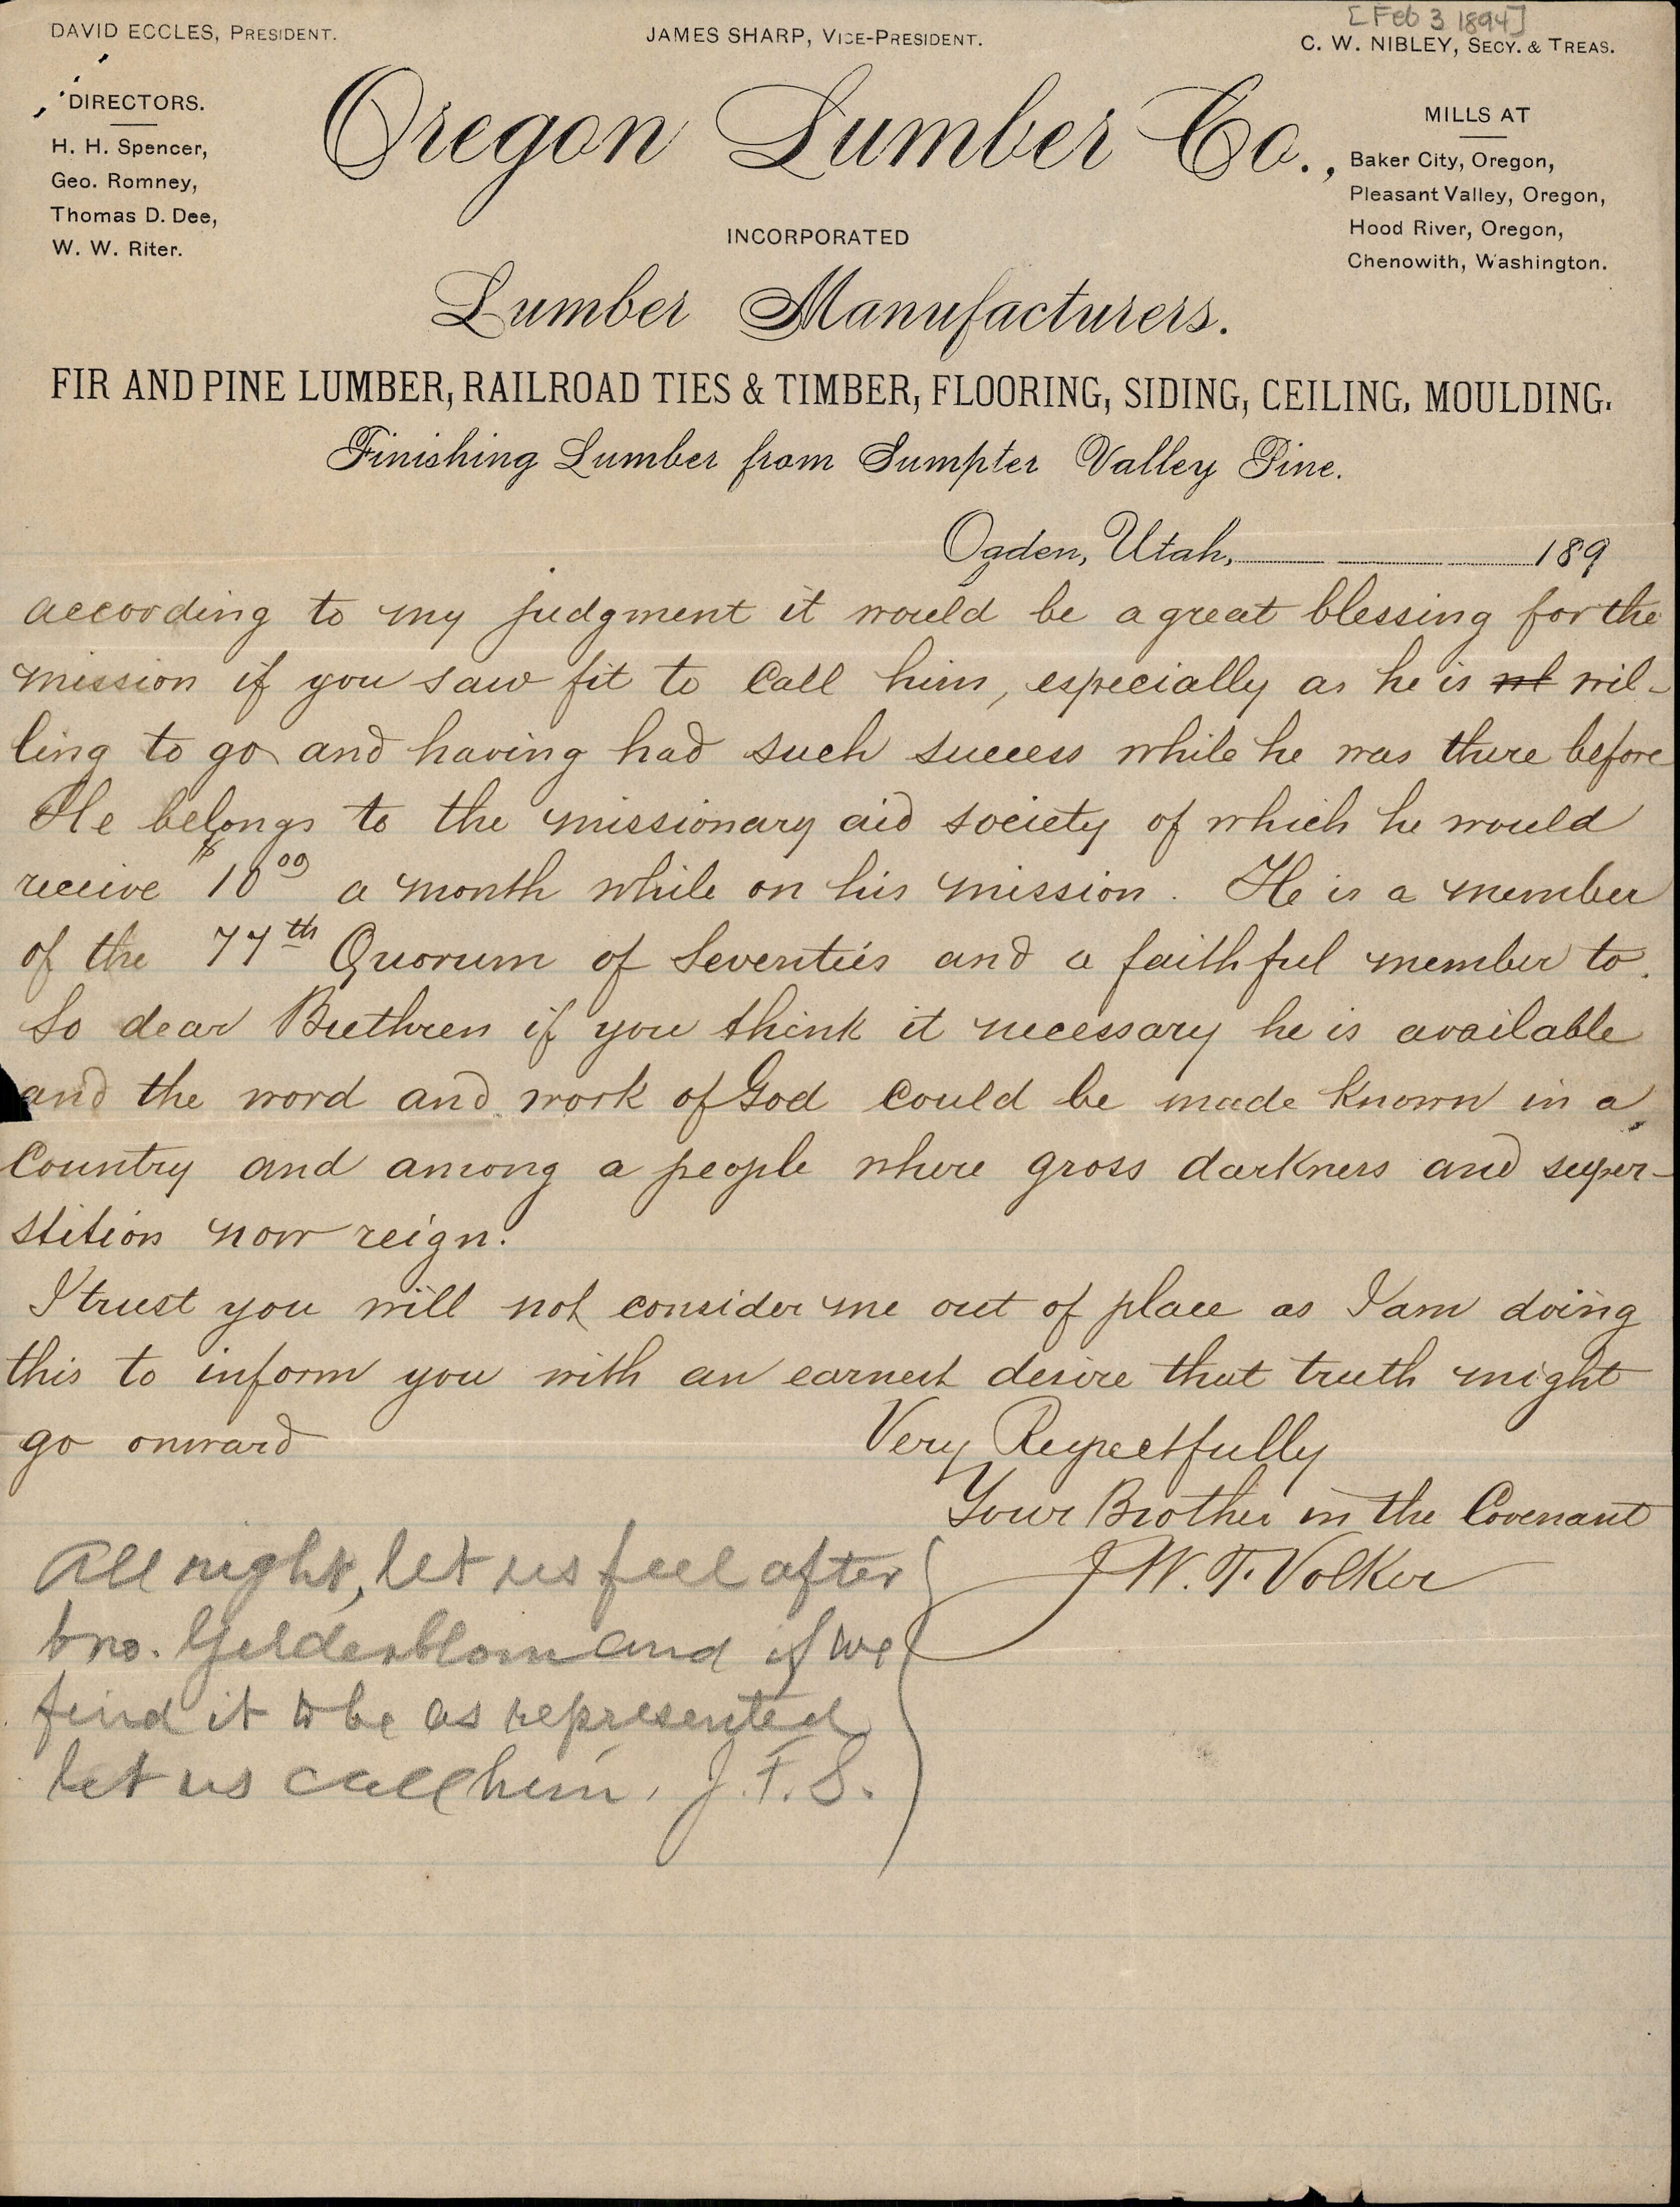 [Feb 3 1894]
DAVID ECCLES, PRESIDENT.
JAMES SHARP, VICE-PRESIDENT.
C. W. NIBLEY, SECY. & TREAS.
DIRECTORS.
H. H. Spencer,
Geo. Romney,
Thomas D. Dee,
W. W. Riter.
Oregon Lumber Co.,
MILLS AT
Baker City, Oregon,
Pleasant Valley, Oregon,
Hood River, Oregon,
Chenowith, Washington.
INCORPORATED
Lumber Manufacturers.
FIR AND PINE LUMBER, RAILROAD TIES & TIMBER, FLOORING, SIDING, CEILING, MOULDING.
Finishing Lumber from Sumpter Valley Pine.
Ogden, Utah, 189
according to my judgment it would be a great blessing for the
mission if you saw fit to call him, especially as he is wil-
ling to go and having had such success while he was there before
He belongs to the missionary aid society of which he would
receive $10 00 a month while on his mission. He is a member
of the 77th Quorum of Seventies and a faithful member to.
So dear Brethren if you think it necessary he is available
and the word and work of God could be made known in a
Country and among a people where gross darkness and super-
stition now reign.
I trust you will not consider me out of place as I am doing
this to inform you with an earnest desire that truth might
go onward
Very Respectfully
Your Brother in the Covenant
J. W. F. Volker
All right, let us feel after
bro. Gelderblom and if we
find it to be as represented
let us call him. J. F. S.